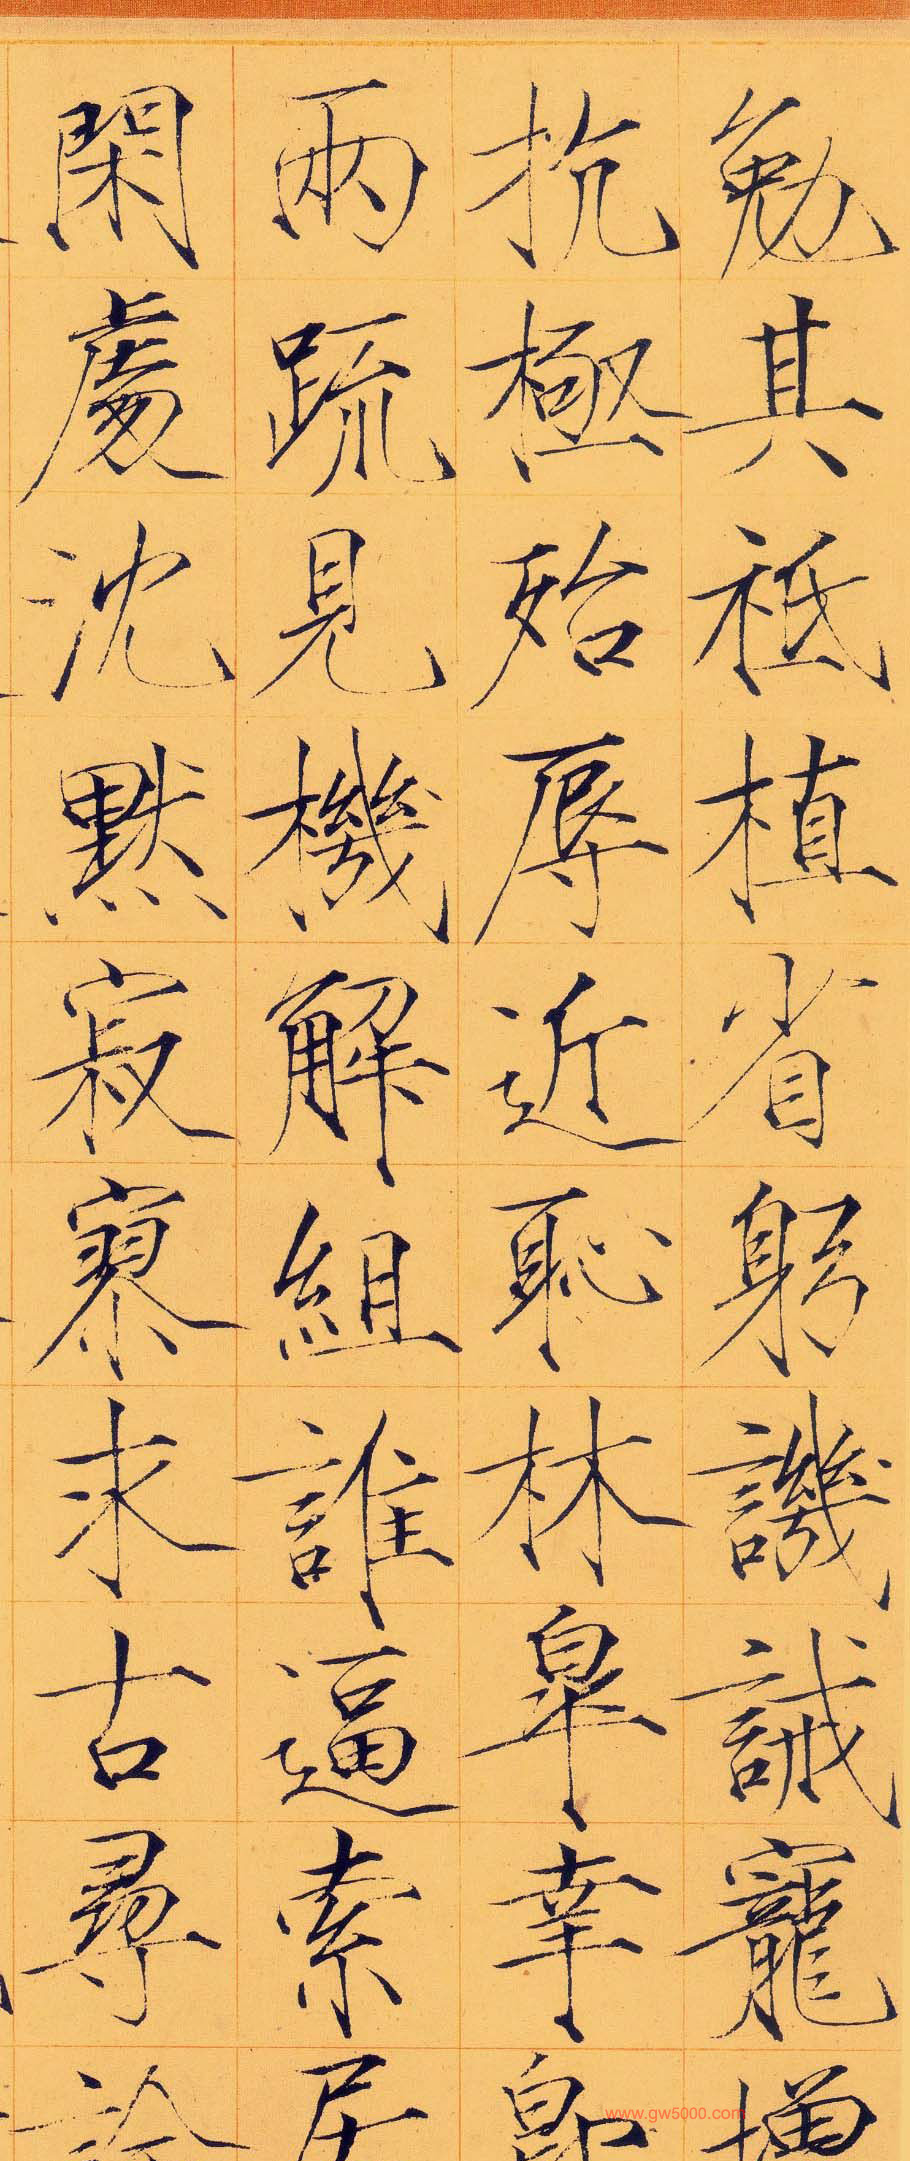 勉其祗植省躬譏誡寵增
抗極殆辱近恥林皐幸即
兩疏見機解組誰逼索居
閑處沈默寂寥求古尋論
www.gw5000.com